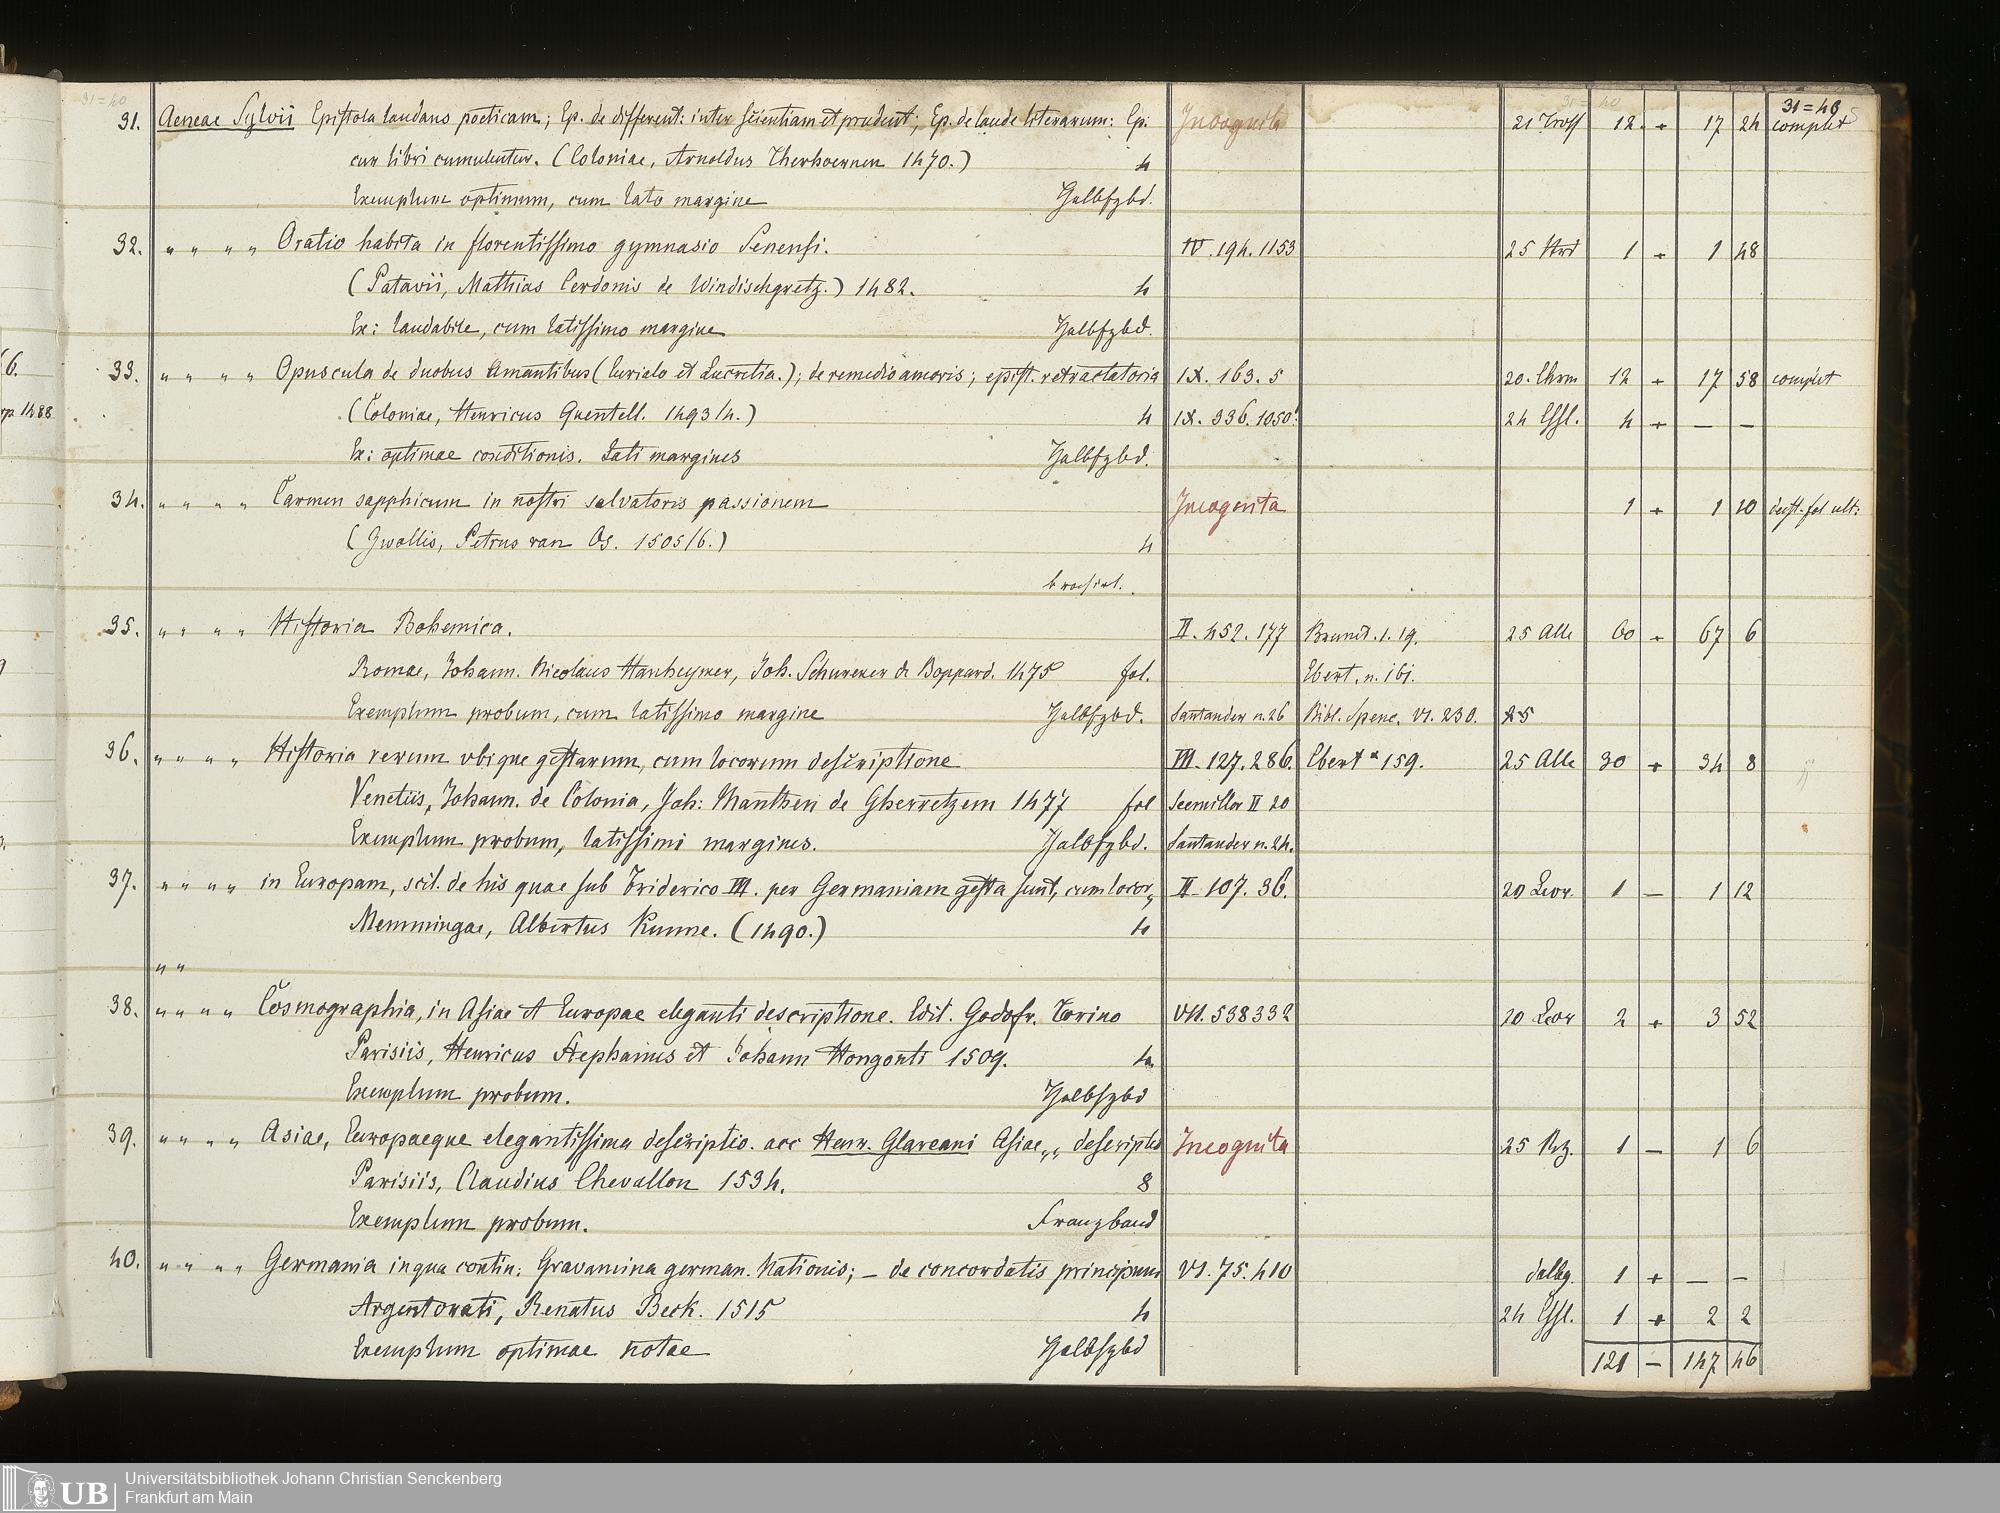 31 = 40
31. Aeneae Sylvii Epistola laudans poeticam; Ep. de different: inter scientiam et prudent; Ep. de laude literarum: Ep. Incognita 21 Troß 12. + 17 24 complet
cur libri cumulentur. (Coloniae, Arnoldus Therhoernen 1470.) 4
Exemplum optimum, cum lato margine Halbfzbd.
32. " " " " Oratio habita in florentissimo gymnasio Senensi. IV. 194. 1153 25 Hrd 1 + 1 48
(Patavii, Mathias Cerdonis de Windischgretz.) 1482. 4
Ex: laudabile, cum latissimo margine Halbfzbd.
33. " " " " Opuscula de duobus Amantibus (Curialo et Lucretia.); de remedio amoris; epist. retractatoria IX. 163. 5 20. Chrm 12 + 17 58 complet
(Coloniae, Henricus Quentell. 1493/4.) 4 IX. 336. 1050! 24 Eßl. 4 + — —
Ex: optimae conditionis. Lati margines Halbfzbd.
34. " " " " Carmen sapphicum in nostri salvatoris passionem Incognita 1 + 1 20 deest. fol ult:
(Gwollis, Petrus van Os. 1505/6.) 4
broschirt.
35. " " " " Historia Bohemica. II. 452. 177 Brunet. 1. 19. 25 Alle 60 + 67 6
Romae, Johann. Nicolaus Hanheymer, Joh. Schurener de Boppard. 1475 fol. Ebert. n. 161.
Exemplum probum, cum latissimo margine Halbfzbd. Santander n. 26 Bibl. Spenc. VI. 230. 25
36. " " " " Historia rerum ubique gestarum, cum locorum descriptione III. 127. 286. Ebert n 159. 25 Alle 30 + 34 8
Venetiis, Johann. de Colonia, Joh: Manthen de Gherretzem 1477 fol Seemiller II 20
Exemplum probum, latissimi margines. Halbfzbd. Santander n. 24.
37. " " " " in Europam, scil. de his quae sub Friderico III. per Germaniam gesta sunt, cum locor„ II. 107. 36. 20 Leor. 1 — 1 12
Memmingae, Albertus Kunne. (1490.) 4
" "
38. " " " " Cosmographia, in Asiae et Europae eleganti descriptione. Edit. Godofr. Torino VII. 538 332 20 Leor 2 + 3 52
Parisiis, Henricus Stephanus et Johann Hongonti 1509. 4
Exemplum probum. Halbfzbd
39. " " " " Asiae, Europaeque elegantissima descriptio. acc Henr. Glareani Asiae„„ descriptio Incognita 25 Btz. 1 — 1 6
Parisiis, Claudius Chevallon 1534. 8
Exemplum probum. Franzband
40. " " " " Germania in qua contin: Gravamina german. Nationis; — de concordatis principum VI. 75. 410 dalbg. 1 + — —
Argentorati, Renatus Beck. 1515 4 24 Eßl. 1 + 2 2
Exemplum optimae notae Halbfzbd
121 — 147 46
UB Universitätsbibliothek Johann Christian Senckenberg
Frankfurt am Main